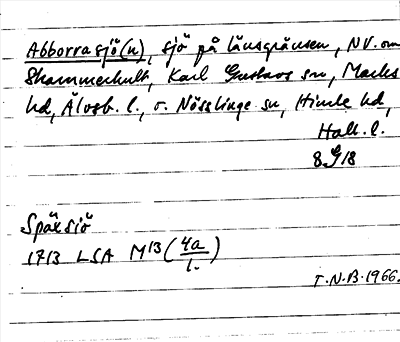 Abborrasjö(n), sjö på länsgränsen, NV. om
Skammerhult, Karl Gustavs sn, Marks
hd, Älvsb. l., o. Nösslinge sn, Himle hd,
Hall. l.
8918
Späxsjö
1713 LSA M13 (4a/1.)
T.N.B. 1966.